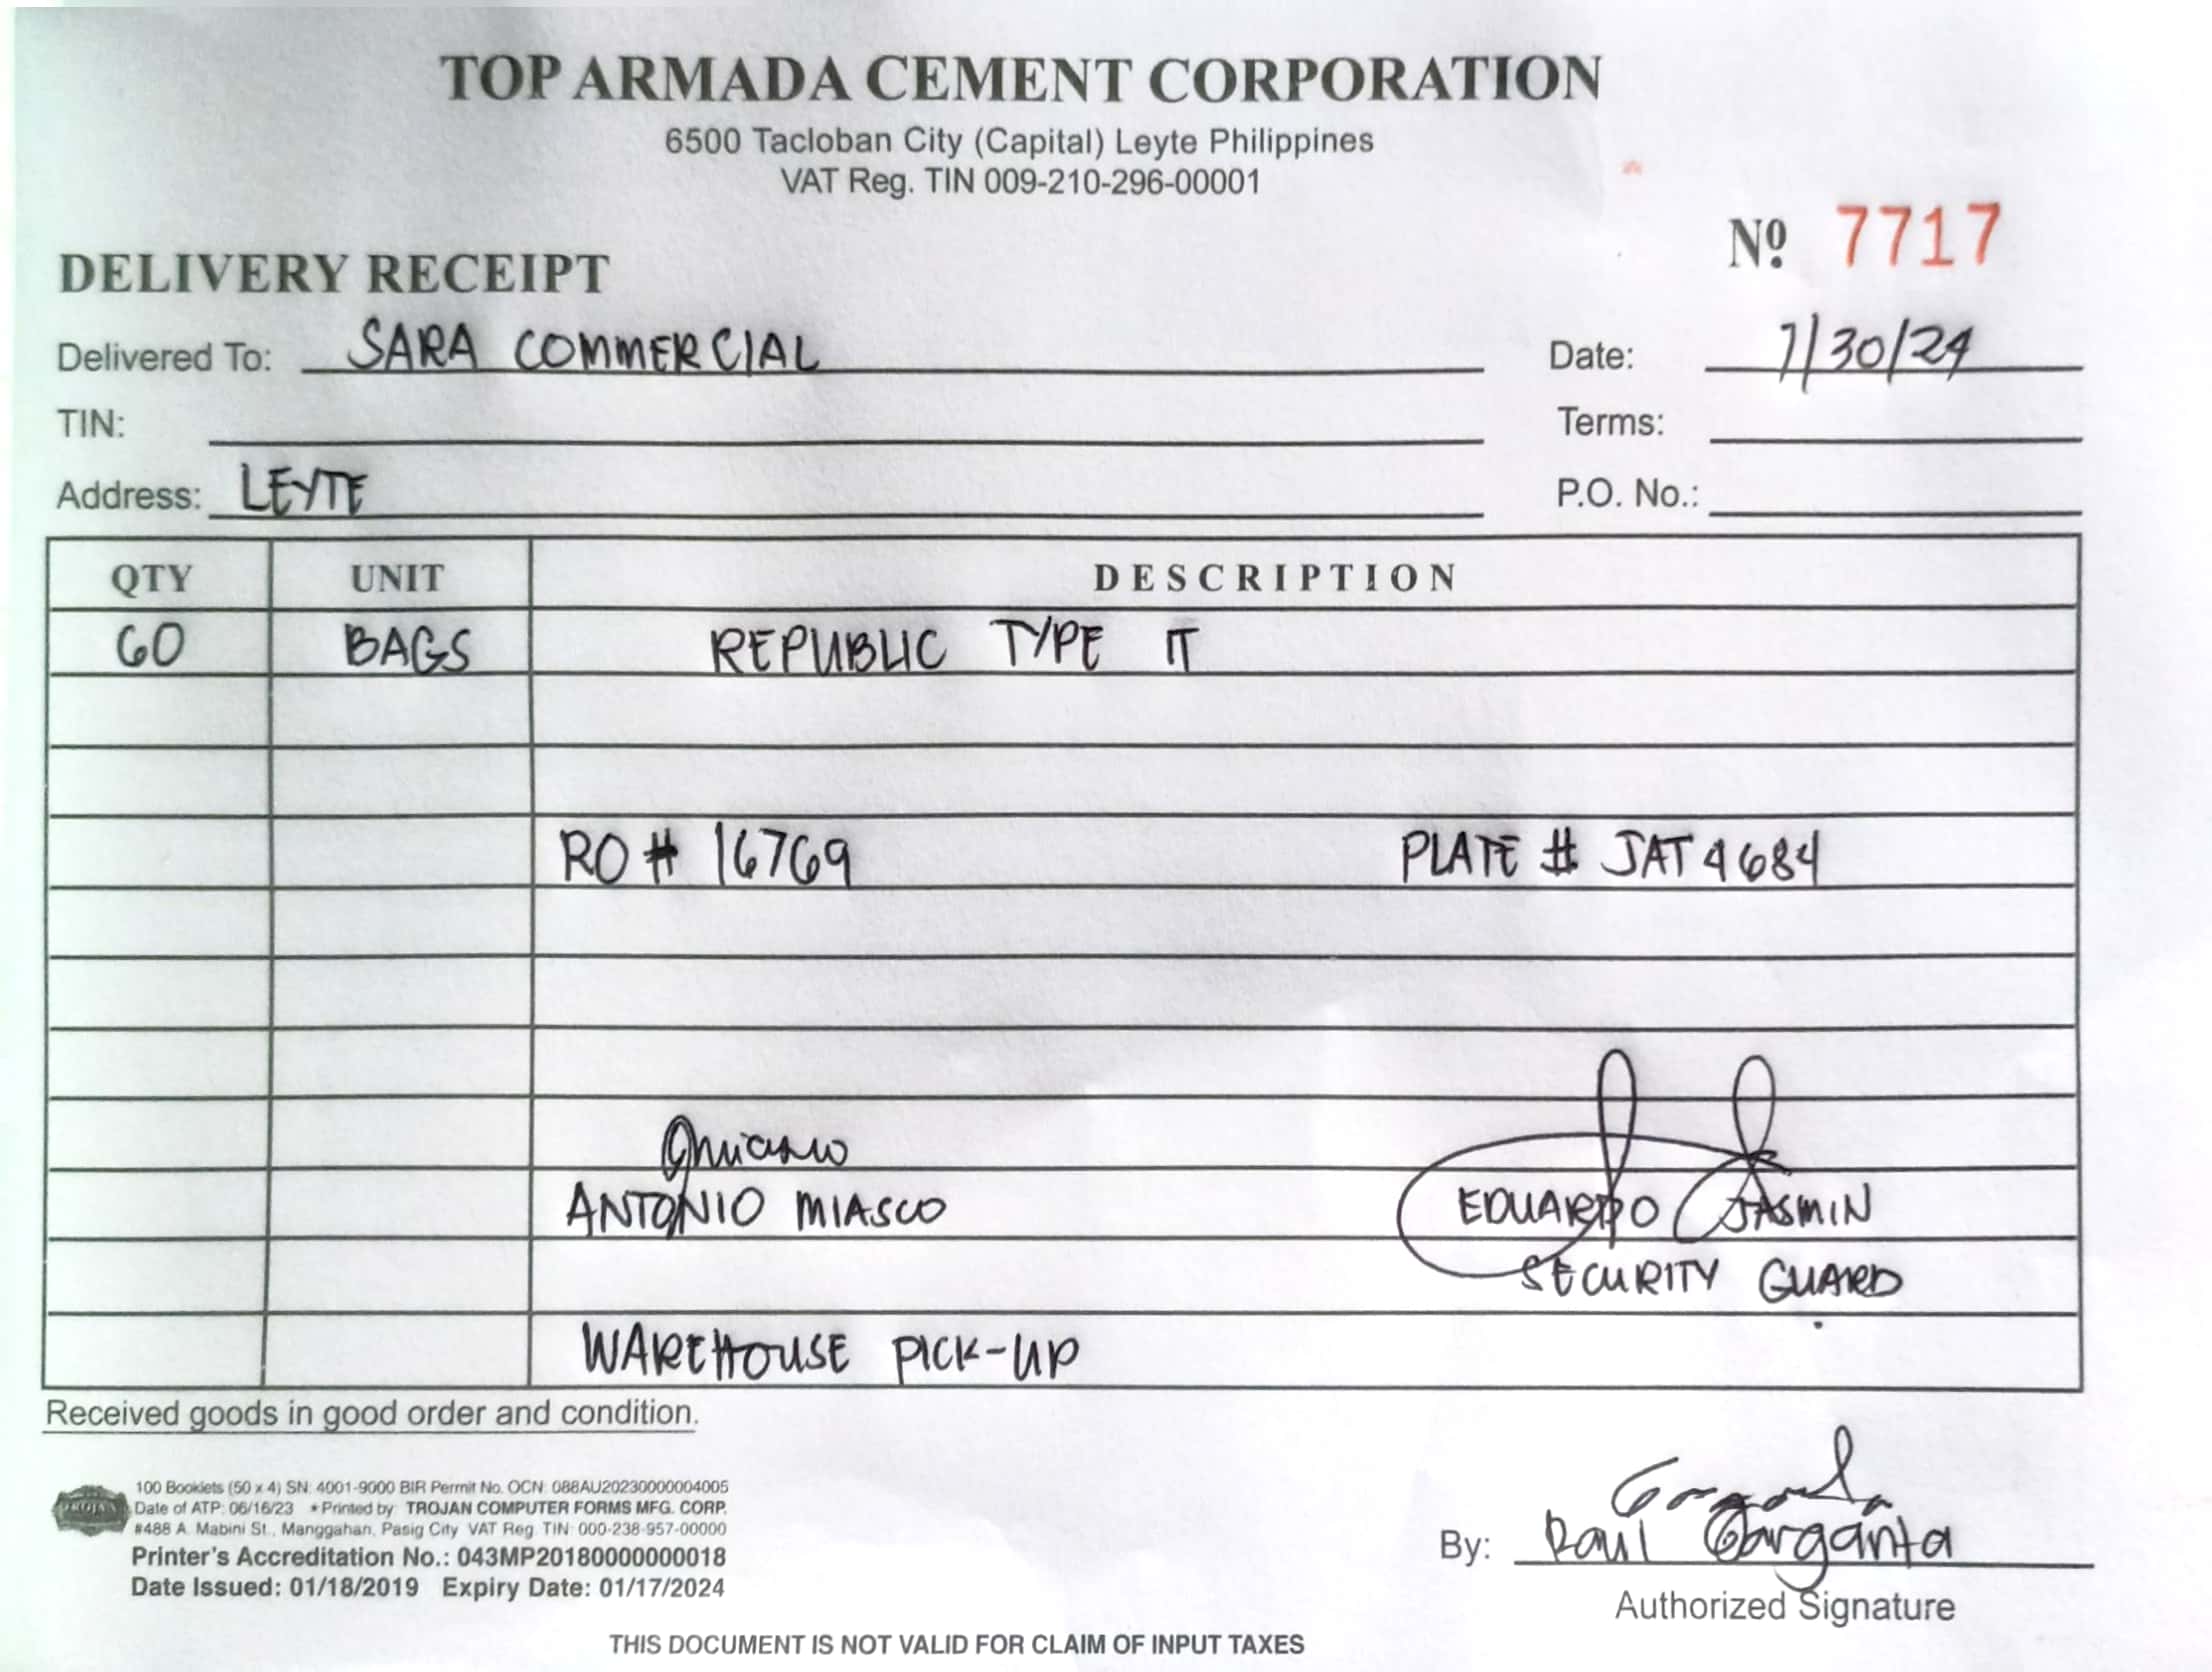 TOP ARMADA CEMENT CORPORATION
6500 Tacloban City (Capital) Leyte Philippines
VAT Reg. TIN 009-210-296-00001
Nº 7717
DELIVERY RECEIPT
Delivered To: SARA COMMERCIAL Date: 7/30/24
TIN: Terms:
Address: LEYTE P.O. No.:
QTY UNIT DESCRIPTION
60 BAGS REPUBLIC TYPE IT
RO # 16769 PLATE # JAT 4684
ANTONIO MIASCO EDUARDO JASMIN
SECURITY GUARD
WAREHOUSE PICK-UP
Received goods in good order and condition.
100 Booklets (50 x 4) SN: 4001-9000 BIR Permit No. OCN: 088AU20230000004005
Date of ATP: 06/16/23 * Printed by: TROJAN COMPUTER FORMS MFG. CORP.
#488 A. Mabini St., Manggahan, Pasig City VAT Reg. TIN: 000-238-957-00000
Printer's Accreditation No.: 043MP20180000000018
Date Issued: 01/18/2019 Expiry Date: 01/17/2024
By: Raul Garganta
Authorized Signature
THIS DOCUMENT IS NOT VALID FOR CLAIM OF INPUT TAXES